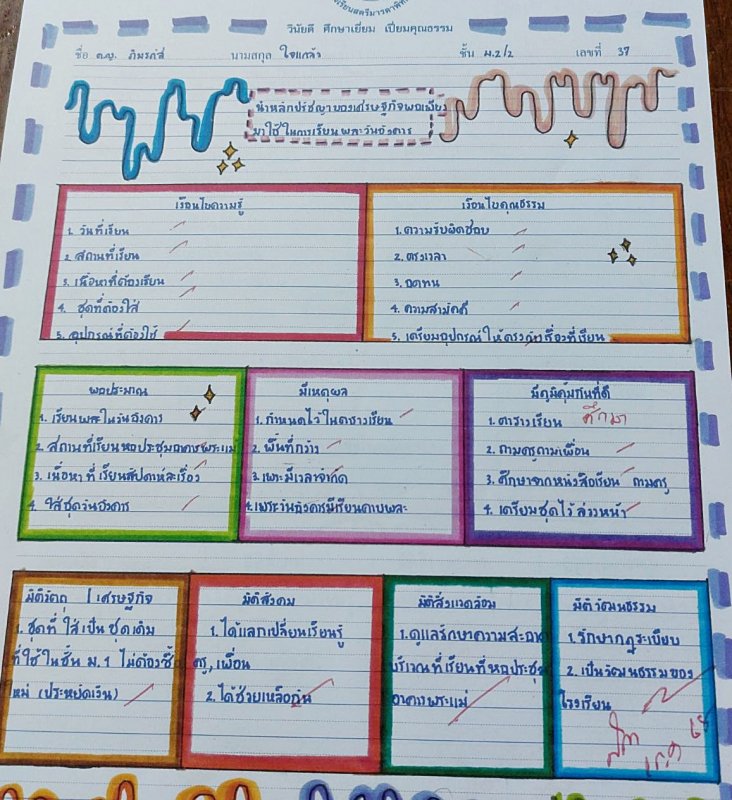 วินัยดี ศึกษาเยี่ยม เปี่ยมคุณธรรม
ชื่อ ด.ญ. นามสกุล ใจแกล้ว ชั้น ม.2/2 เลขที่ 37
นำหลักปรัชญาของเศรษฐกิจพอเพียง
มาใช้ในการเรียนพละวันอังคาร
เงื่อนไขความรู้
1. วันที่เรียน
2. สถานที่เรียน
3. เนื้อหาที่ต้องเรียน
4. ชุดที่ต้องใส่
5. อุปกรณ์ที่ต้องใช้
เงื่อนไขคุณธรรม
1. ความรับผิดชอบ
2. ตรงเวลา
3. อดทน
4. ความสามัคคี
5. เตรียมอุปกรณ์ให้ตรงกับเรื่องที่เรียน
พอประมาณ
1. เรียนพละในวันอังคาร
2. สถานที่เรียนหอประชุมอาคารพระแม่
3. เนื้อหาที่เรียนสัปดาห์ละเรื่อง
4. ใส่ชุดวันอังคาร
มีเหตุผล
1. กำหนดไว้ในตารางเรียน
2. พื้นที่กว้าง
3. เพราะมีเวลาจำกัด
4. เพราะวันอังคารมีเรียนคาบพละ
มีภูมิคุ้มกันที่ดี
1. ตารางเรียน ศึกษา
2. ถามครูถามเพื่อน
3. ศึกษาจากหนังสือเรียน ถามครู
4. เตรียมชุดไว้ล่วงหน้า
มิติวัตถุ | เศรษฐกิจ
1. ชุดที่ใส่เป็นชุดเดิม
ที่ใช้ในชั้น ม.1 ไม่ต้องซื้อ
ใหม่ (ประหยัดเงิน)
มิติสังคม
1. ได้แลกเปลี่ยนเรียนรู้
ครู, เพื่อน
2. ได้ช่วยเหลือกัน
มิติสิ่งแวดล้อม
1. ดูแลรักษาความสะอาด
บริเวณที่เรียนที่หอประชุม
อาคารพระแม่
มิติวัฒนธรรม
1. รักษากฎระเบียบ
2. เป็นวัฒนธรรมของ
โรงเรียน